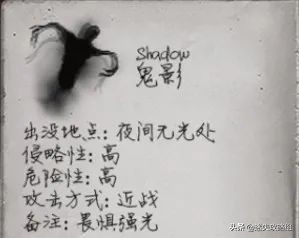 Shadow
鬼影
出没地点: 夜间无光处
侵略性: 高
危险性: 高
攻击方式: 近战
备注: 畏惧强光